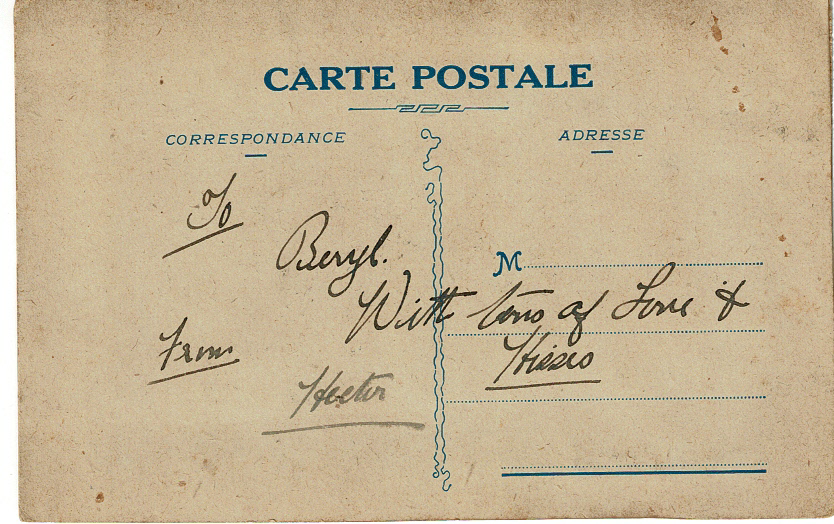 CARTE POSTALE
CORRESPONDANCE
ADRESSE
To
Beryl.
M
With tons of Love &
Kisses
From
Hector